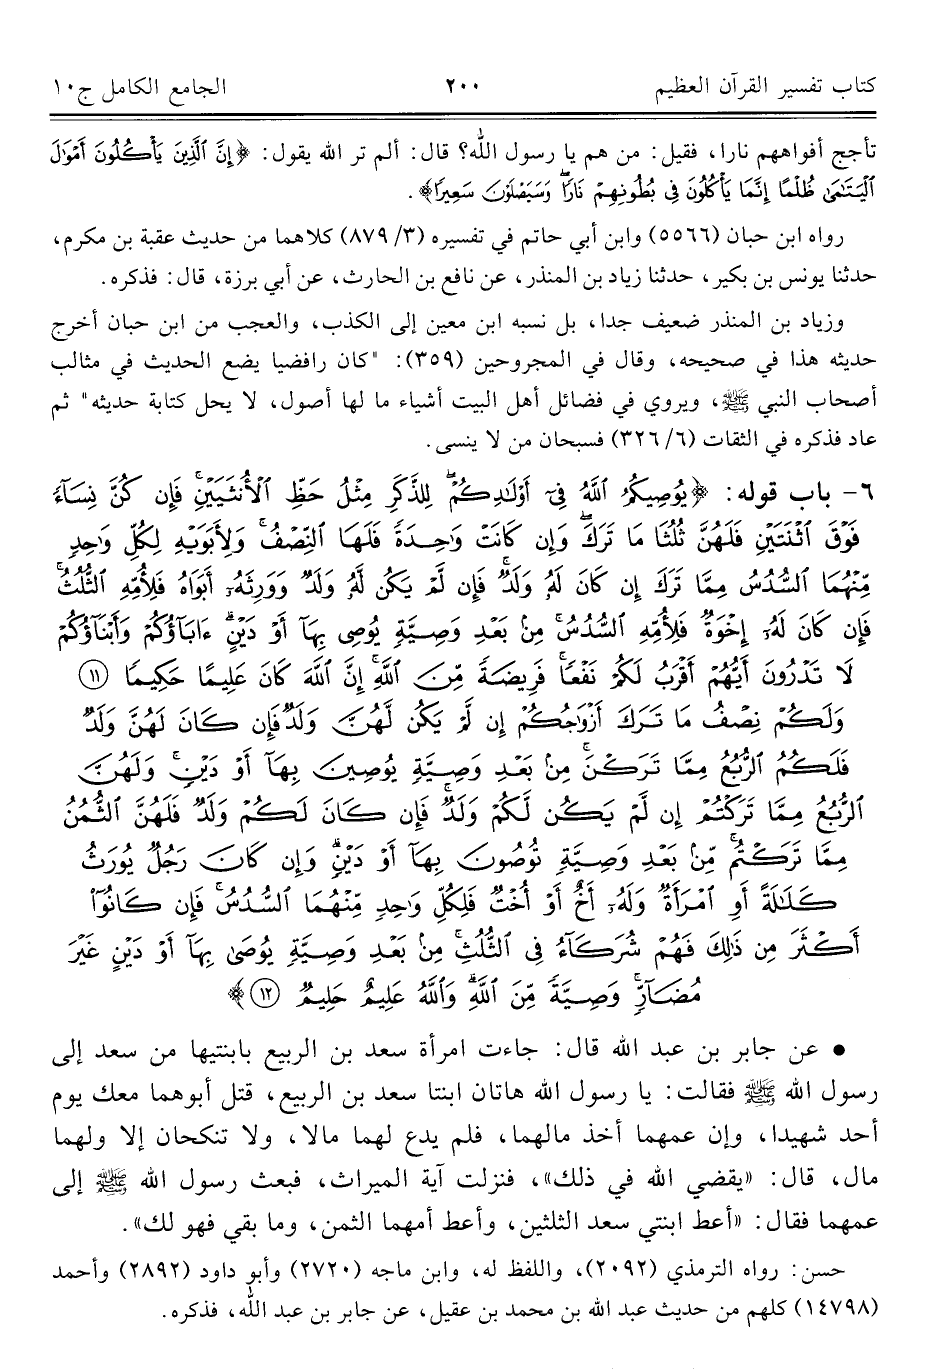 كتاب تفسير القرآن العظيم ٢٠٠ الجامع الكامل ج١٠
تأجج أفواههم نارا، فقيل: من هم يا رسول الله؟ قال: ألم تر الله يقول: ﴿إِنَّ ٱلَّذِينَ يَأْكُلُونَ أَمْوَٰلَ
ٱلْيَتَٰمَىٰ ظُلْمًا إِنَّمَا يَأْكُلُونَ فِى بُطُونِهِمْ نَارًا ۖ وَسَيَصْلَوْنَ سَعِيرًا﴾.
رواه ابن حبان (٥٥٦٦) وابن أبي حاتم في تفسيره (٣/ ٨٧٩) كلاهما من حديث عقبة بن مكرم،
حدثنا يونس بن بكير، حدثنا زياد بن المنذر، عن نافع بن الحارث، عن أبي برزة، قال: فذكره.
وزياد بن المنذر ضعيف جدا، بل نسبه ابن معين إلى الكذب، والعجب من ابن حبان أخرج
حديثه هذا في صحيحه، وقال في المجروحين (٣٥٩): "كان رافضيا يضع الحديث في مثالب
أصحاب النبي ﷺ، ويروي في فضائل أهل البيت أشياء ما لها أصول، لا يحل كتابة حديثه" ثم
عاد فذكره في الثقات (٦/ ٣٢٦) فسبحان من لا ينسى.
٦- باب قوله: ﴿يُوصِيكُمُ ٱللَّهُ فِىٓ أَوْلَٰدِكُمْ ۖ لِلذَّكَرِ مِثْلُ حَظِّ ٱلْأُنثَيَيْنِ ۚ فَإِن كُنَّ نِسَآءً
فَوْقَ ٱثْنَتَيْنِ فَلَهُنَّ ثُلُثَا مَا تَرَكَ ۖ وَإِن كَانَتْ وَٰحِدَةً فَلَهَا ٱلنِّصْفُ ۚ وَلِأَبَوَيْهِ لِكُلِّ وَٰحِدٍ
مِّنْهُمَا ٱلسُّدُسُ مِمَّا تَرَكَ إِن كَانَ لَهُۥ وَلَدٌ ۚ فَإِن لَّمْ يَكُن لَّهُۥ وَلَدٌ وَوَرِثَهُۥٓ أَبَوَاهُ فَلِأُمِّهِ ٱلثُّلُثُ ۚ
فَإِن كَانَ لَهُۥٓ إِخْوَةٌ فَلِأُمِّهِ ٱلسُّدُسُ ۚ مِنۢ بَعْدِ وَصِيَّةٍ يُوصِى بِهَآ أَوْ دَيْنٍ ۗ ءَابَآؤُكُمْ وَأَبْنَآؤُكُمْ
لَا تَدْرُونَ أَيُّهُمْ أَقْرَبُ لَكُمْ نَفْعًا ۚ فَرِيضَةً مِّنَ ٱللَّهِ ۗ إِنَّ ٱللَّهَ كَانَ عَلِيمًا حَكِيمًا ١١
وَلَكُمْ نِصْفُ مَا تَرَكَ أَزْوَٰجُكُمْ إِن لَّمْ يَكُن لَّهُنَّ وَلَدٌ ۚ فَإِن كَانَ لَهُنَّ وَلَدٌ
فَلَكُمُ ٱلرُّبُعُ مِمَّا تَرَكْنَ ۚ مِنۢ بَعْدِ وَصِيَّةٍ يُوصِينَ بِهَآ أَوْ دَيْنٍ ۚ وَلَهُنَّ
ٱلرُّبُعُ مِمَّا تَرَكْتُمْ إِن لَّمْ يَكُن لَّكُمْ وَلَدٌ ۚ فَإِن كَانَ لَكُمْ وَلَدٌ فَلَهُنَّ ٱلثُّمُنُ
مِمَّا تَرَكْتُم ۚ مِّنۢ بَعْدِ وَصِيَّةٍ تُوصُونَ بِهَآ أَوْ دَيْنٍ ۗ وَإِن كَانَ رَجُلٌ يُورَثُ
كَلَٰلَةً أَوِ ٱمْرَأَةٌ وَلَهُۥٓ أَخٌ أَوْ أُخْتٌ فَلِكُلِّ وَٰحِدٍ مِّنْهُمَا ٱلسُّدُسُ ۚ فَإِن كَانُوٓا۟
أَكْثَرَ مِن ذَٰلِكَ فَهُمْ شُرَكَآءُ فِى ٱلثُّلُثِ ۚ مِنۢ بَعْدِ وَصِيَّةٍ يُوصَىٰ بِهَآ أَوْ دَيْنٍ غَيْرَ
مُضَآرٍّ ۚ وَصِيَّةً مِّنَ ٱللَّهِ ۗ وَٱللَّهُ عَلِيمٌ حَلِيمٌ ١٢﴾
• عن جابر بن عبد الله قال: جاءت امرأة سعد بن الربيع بابنتيها من سعد إلى
رسول الله ﷺ فقالت: يا رسول الله هاتان ابنتا سعد بن الربيع، قتل أبوهما معك يوم
أحد شهيدا، وإن عمهما أخذ مالهما، فلم يدع لهما مالا، ولا تنكحان إلا ولهما
مال، قال: «يقضي الله في ذلك»، فنزلت آية الميراث، فبعث رسول الله ﷺ إلى
عمهما فقال: «أعط ابنتي سعد الثلثين، وأعط أمهما الثمن، وما بقي فهو لك».
حسن: رواه الترمذي (٢٠٩٢)، واللفظ له، وابن ماجه (٢٧٢٠) وأبو داود (٢٨٩٢) وأحمد
(١٤٧٩٨) كلهم من حديث عبد الله بن محمد بن عقيل، عن جابر بن عبد الله، فذكره.